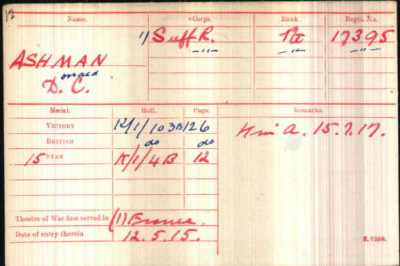 12
Name. +Corps. Rank. Regtl. No.
1) Suff R. Pte 17395
ASHMAN -"- -"- -"-
onald
D. C.
Medal. Roll. Page. Remarks.
VICTORY K/1/103B 126
BRITISH do do
15 STAR K/1/4B 12
Theatre of War first served in (1) France.
Date of entry therein 12.5.15.
A. 15.7.17.